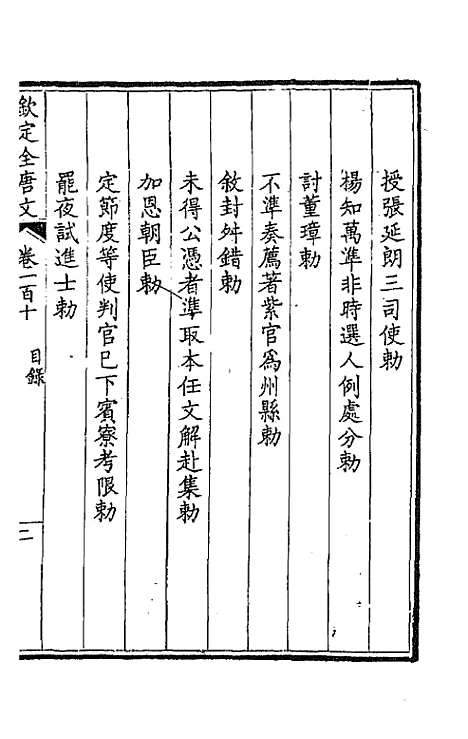 授張延朗三司使勅
楊知萬準非時選人例處分勅
討董璋勅
不準奏薦著紫官為州縣勅
敘封舛錯勅
未得公憑者準取本任文解赴集勅
加恩朝臣勅
定節度等使判官已下賓寮考限勅
罷夜試進士勅
欽定全唐文 卷一百十 目錄 二